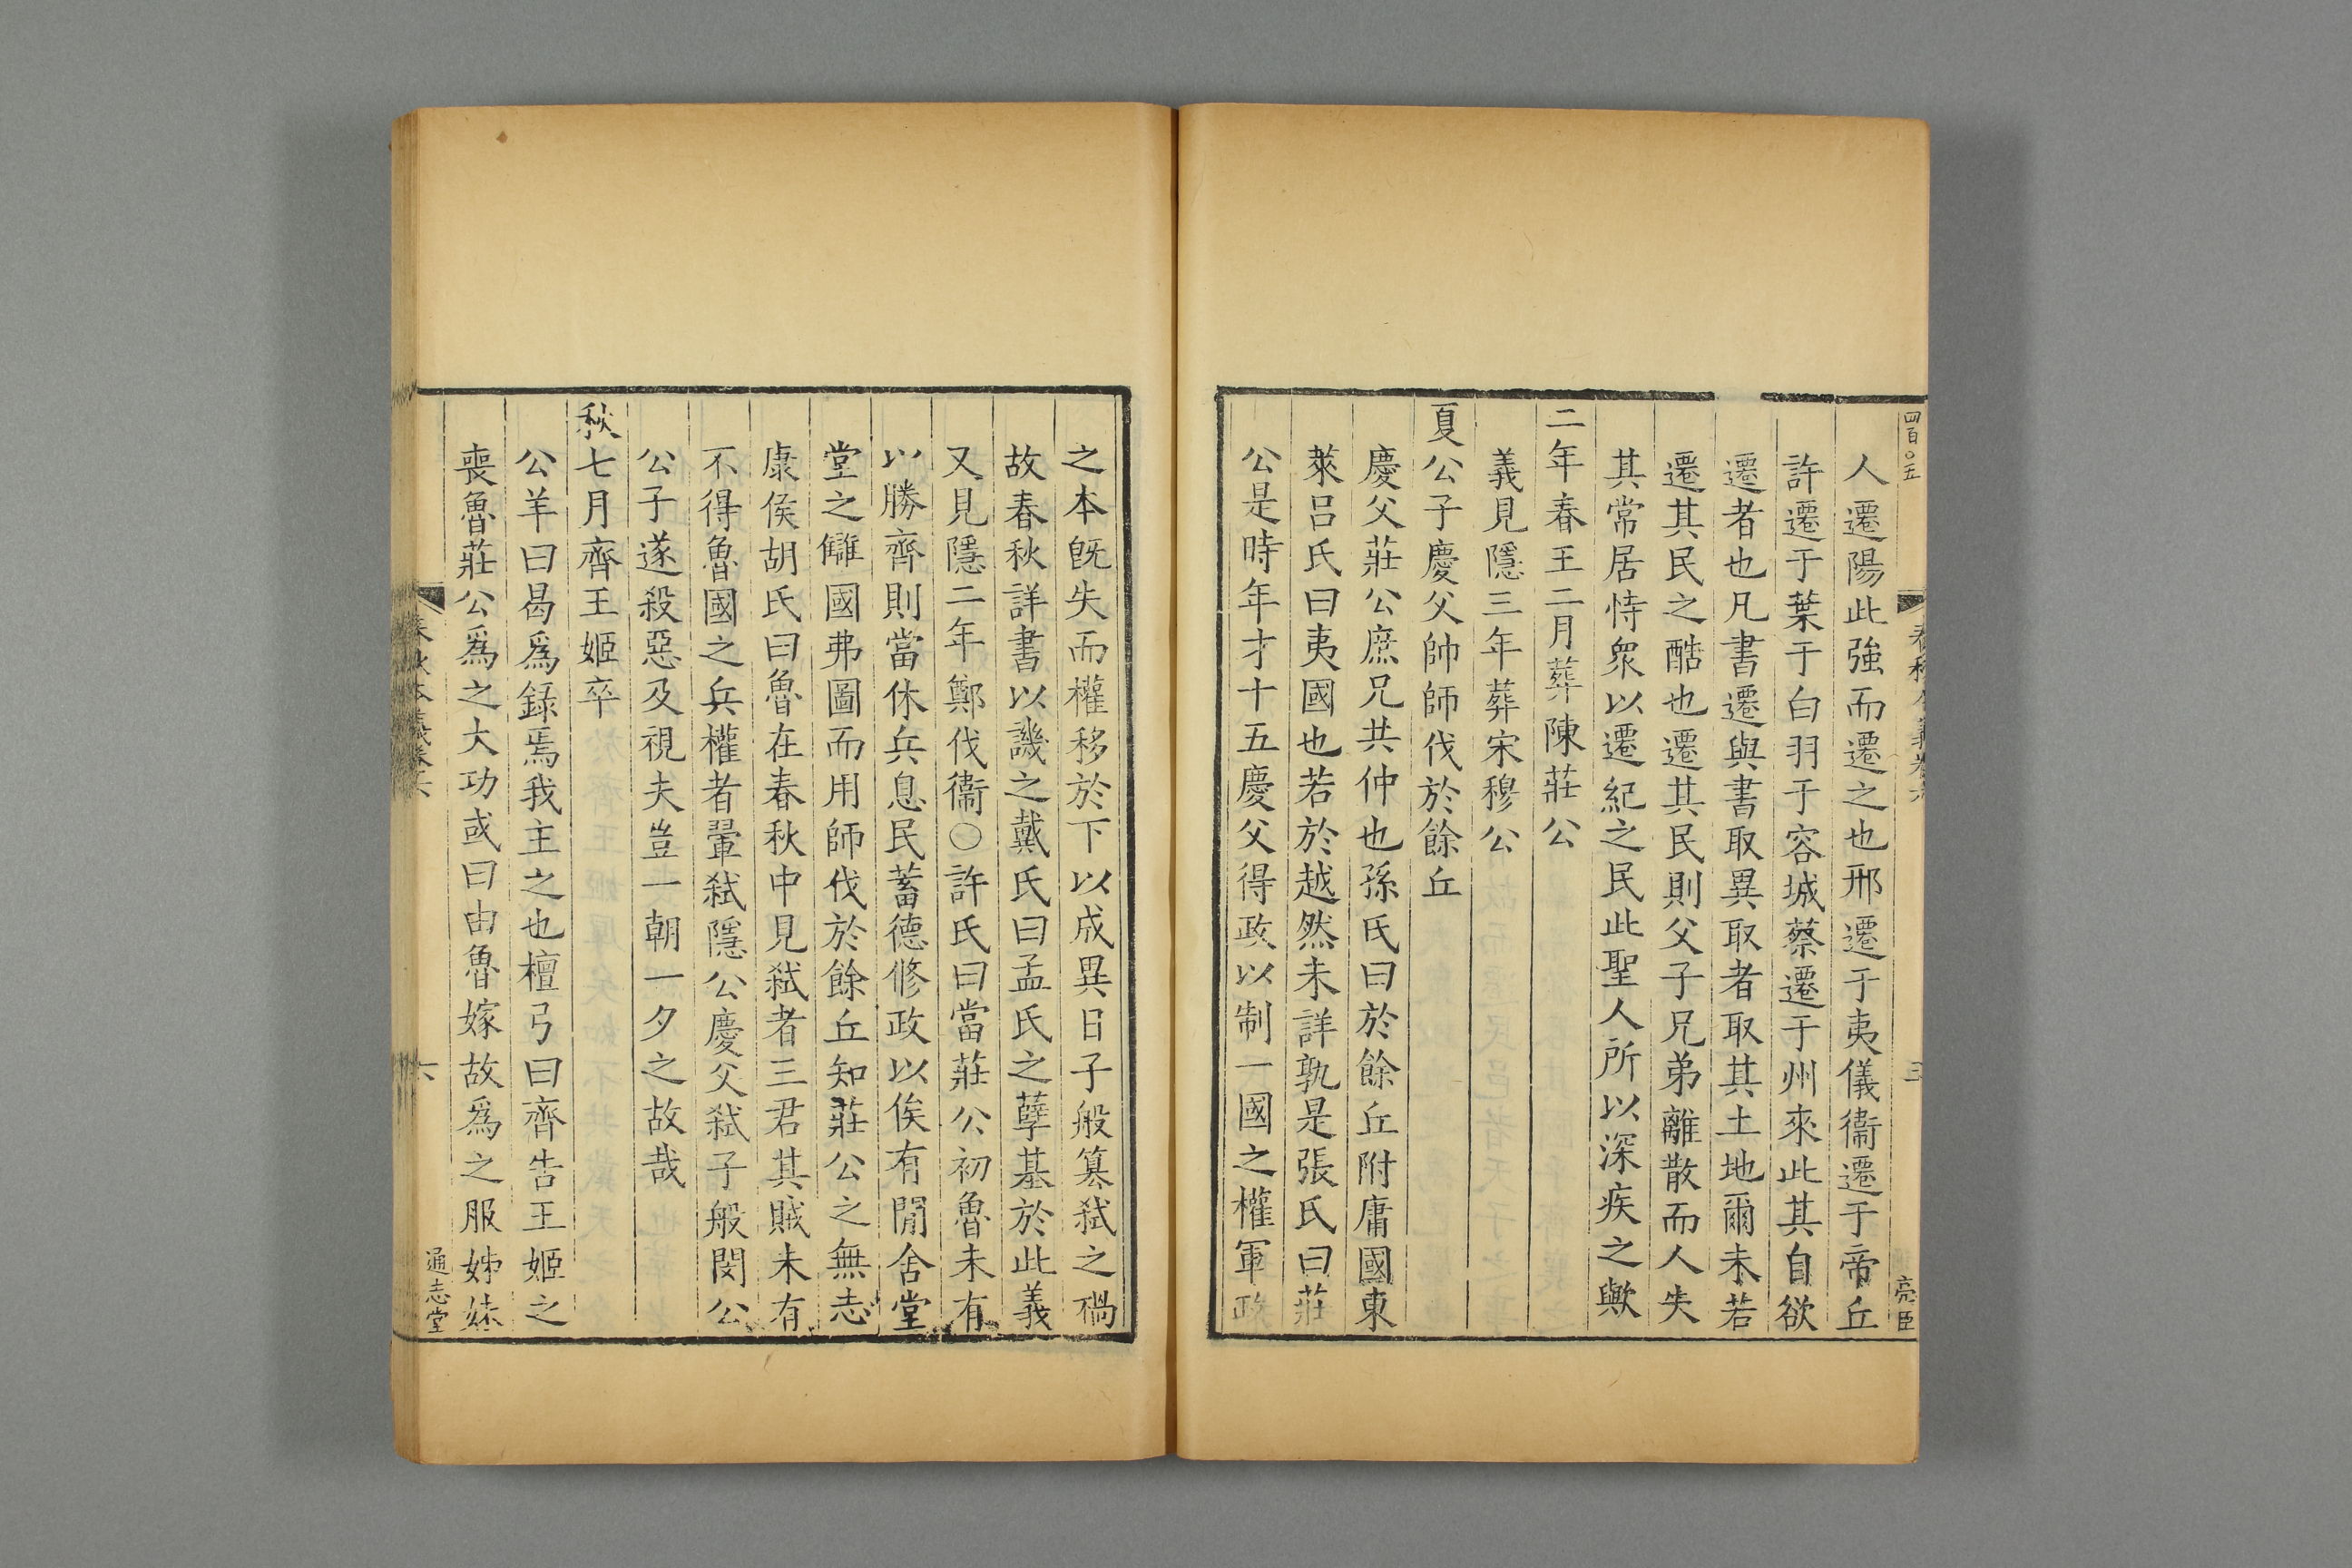 四百〇五
人遷陽此強而遷之也邢遷于夷儀衞遷于帝丘
許遷于葉于白羽于容城蔡遷于州來此其自欲
遷者也凡書遷與書取異取者取其土地爾未若
遷其民之酷也遷其民則父子兄弟離散而人失
其常居恃衆以遷紀之民此聖人所以深疾之歟
二年春王二月葬陳莊公
義見隱三年葬宋穆公
夏公子慶父帥師伐於餘丘
慶父莊公庶兄共仲也孫氏曰於餘丘附庸國東
萊呂氏曰夷國也若於越然未詳孰是張氏曰莊
公是時年才十五慶父得政以制一國之權軍政
亮臣
之本旣失而權移於下以成異日子般篡弒之禍
故春秋詳書以譏之戴氏曰孟氏之孽基於此義
又見隱二年鄭伐衞○許氏曰當莊公初魯未有
以勝齊則當休兵息民蓄德修政以俟有閒舍堂
堂之讎國弗圖而用師伐於餘丘知莊公之無志
康侯胡氏曰魯在春秋中見弒者三君其賊未有
不得魯國之兵權者翬弒隱公慶父弒子般閔公
公子遂殺惡及視夫豈一朝一夕之故哉
秋七月齊王姬卒
公羊曰曷爲錄焉我主之也檀弓曰齊告王姬之
喪魯莊公爲之大功或曰由魯嫁故爲之服姊妹
春秋本義卷六
六
通志堂